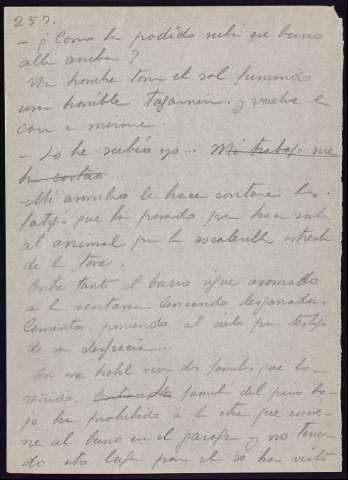 257.
- ¿Como ha podido subir ese burro
alli arriba?
Un hombre toma el sol fumando
un horrible tagarnin y vuelve la
cara a mirarme.
- Lo he subido yo... Mi trabajo me
ha costao...
-Mi asombro le hace contarme los
que ha pasado para hacer subir
al animal por la escalerilla estrecha
de la torre.
Entre tanto el burro sigue asomado
a la ventana lanzando desgarradores
lamentos poniendo al cielo por testigo
de su desgracia...
En ese hotel viven dos familias que han
reñido. La familia del piso ba-
jo ha prohibido a la otra que encie-
rre al burro en el garage y no tenien-
do otro lugar para el se ha visto